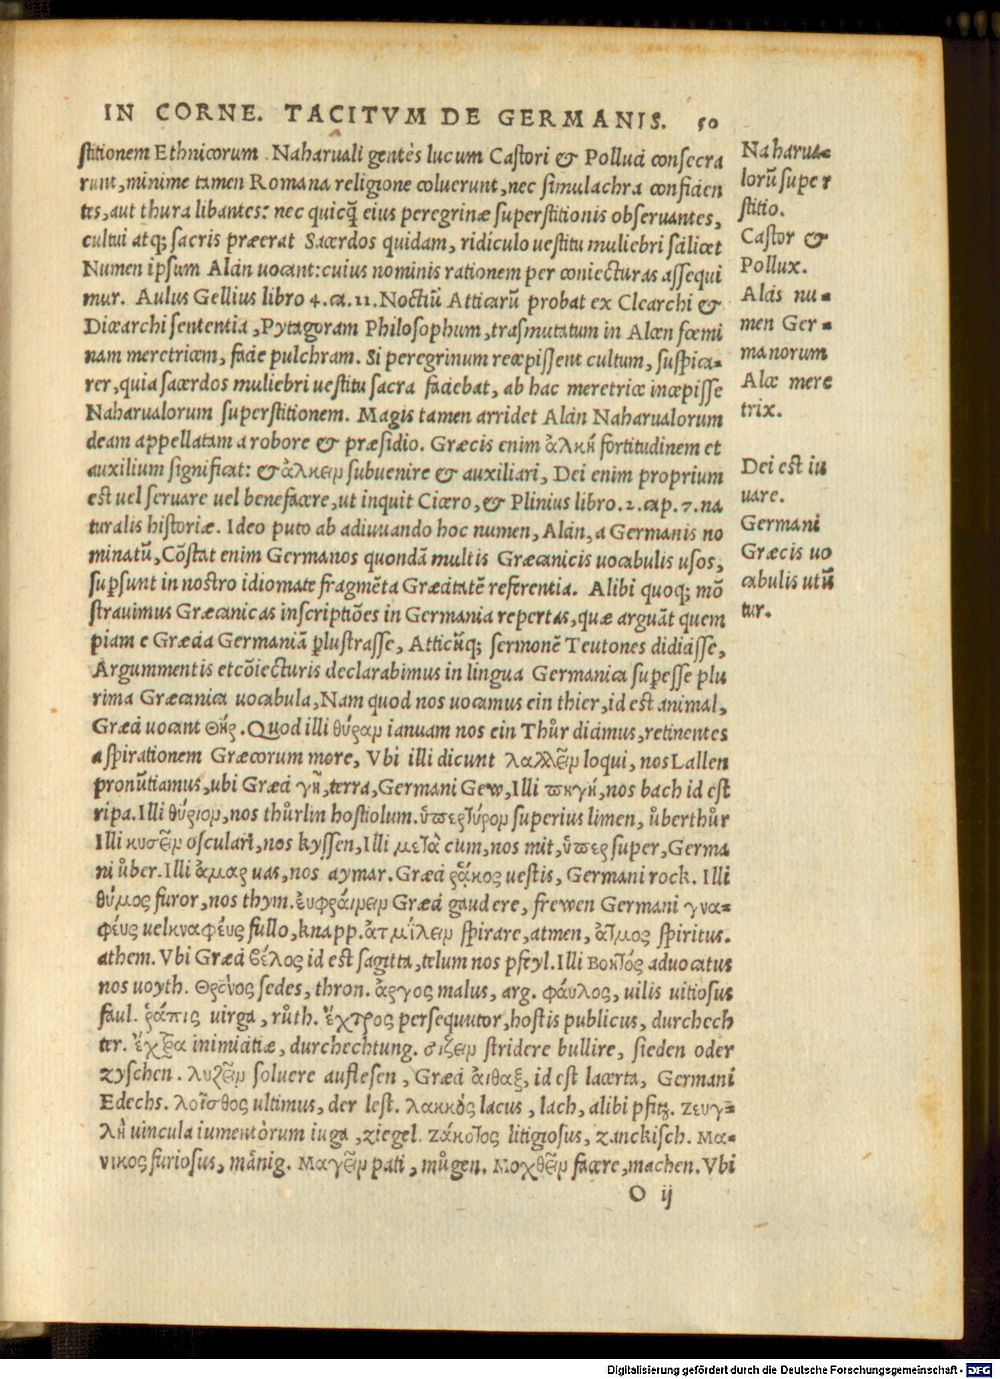 IN CORNE. TACITVM DE GERMANIS. 50
stitionem Ethnicorum. Naharuali gentes lucum Castori & Polluci consecra
runt, minime tamen Romana religione coluerunt, nec simulachra conficien
tes, aut thura libantes: nec quicq̃ eius peregrinæ superstitionis obseruantes,
cultui atq; sacris præerat Sacerdos quidam, ridiculo uestitu muliebri scilicet
Numen ipsum Alcin uocant: cuius nominis rationem per coniecturas assequi
mur. Aulus Gellius libro 4. ca. 11. Noctiũ Atticarũ probat ex Clearchi &
Dicæarchi sententia, Pytagoram Philosophum, trãsmutatum in Alcen fœmi
nam meretricem, facie pulchram. Si peregrinum recepissent cultum, suspica-
rer, quia sacerdos muliebri uestitu sacra faciebat, ab hac meretrice incepisse
Naharualorum superstitionem. Magis tamen arridet Alcin Naharualorum
deam appellatam a robore & præsidio. Græcis enim ἀλκὴ fortitudinem et
auxilium significat: & ἀλκειν subuenire & auxiliari, Dei enim proprium
est uel seruare uel benefacere, ut inquit Cicero, & Plinius libro. 2. cap. 7. na
turalis historiæ. Ideo puto ab adiuuando hoc numen, Alcin, a Germanis no
minatũ, Cõstat enim Germanos quondã multis Græcanicis uocabulis usos,
supsunt in nostro idiomate fragmẽta Græcitatẽ referentia. Alibi quoq; mõ
strauimus Græcanicas inscriptiões in Germania repertas, quæ arguãt quem
piam e Græcia Germaniã plustrasse, Atticũq; sermonẽ Teutones didicisse,
Argummentis et cõiecturis declarabimus in lingua Germanica supesse plu
rima Græcanica uocabula, Nam quod nos uocamus ein thier, id est animal,
Græci uocant θήρ. Quod illi θύραν ianuam nos ein Thůr dicimus, retinentes
aspirationem Græcorum more, Vbi illi dicunt λαλεῖν loqui, nos Lallen
pronũtiamus, ubi Græci γῆ, terra, Germani Gew, Illi πηγή, nos bach id est
ripa. Illi θύριον, nos thůrlin hostiolum. ὑπερθύρον superius limen, ůberthůr
Illi κυσεῖν osculari, nos kyssen, Illi μετὰ cum, nos mit, ὑπερ super, Germa
ni ůber. Illi ἄμαρ uas, nos aymar. Græci ῥάκος uestis, Germani rock. Illi
θύμος furor, nos thym. ἐυφράινειν Græci gaudere, frewen Germani γνα-
φέυς uel κναφέυς fullo, knapp. ἀτμίζειν spirare, atmen, ἄτμος spiritus.
athem. Vbi Græci βέλος id est sagitta, telum nos pfeyl. Illi Βοητός aduocatus
nos uoyth. Θρόνος sedes, thron. ἄργος malus, arg. φάυλος, uilis uitiosus
faul. ῥάπις uirga, růth. ἔχτρος persequutor, hostis publicus, durchech
ter. ἔχτρα inimicitiæ, durchechtung. σιζειν stridere bullire, sieden oder
zyschen. λυζεῖν soluere auflesen, Græci ἄιθαξ, id est lacerta, Germani
Edechs. λοῖσθος ultimus, der lest. λακκός lacus, lach, alibi pfitz. Ζευγ-
λὴ uincula iumentorum iuga, ziegel. Ζάκοτος litigiosus, zanckisch. Μα-
νικος furiosus, mänig. Μαγεῖν pati, můgen. Μοχθεῖν facere, machen. Vbi
O ij
Naharua-
lorũ super
stitio.
Castor &
Pollux.
Alcis nu-
men Ger-
manorum
Alce mere
trix.
Dei est iu
uare.
Germani
Græcis uo
cabulis utũ
tur.
Digitalisierung gefördert durch die Deutsche Forschungsgemeinschaft - DFG